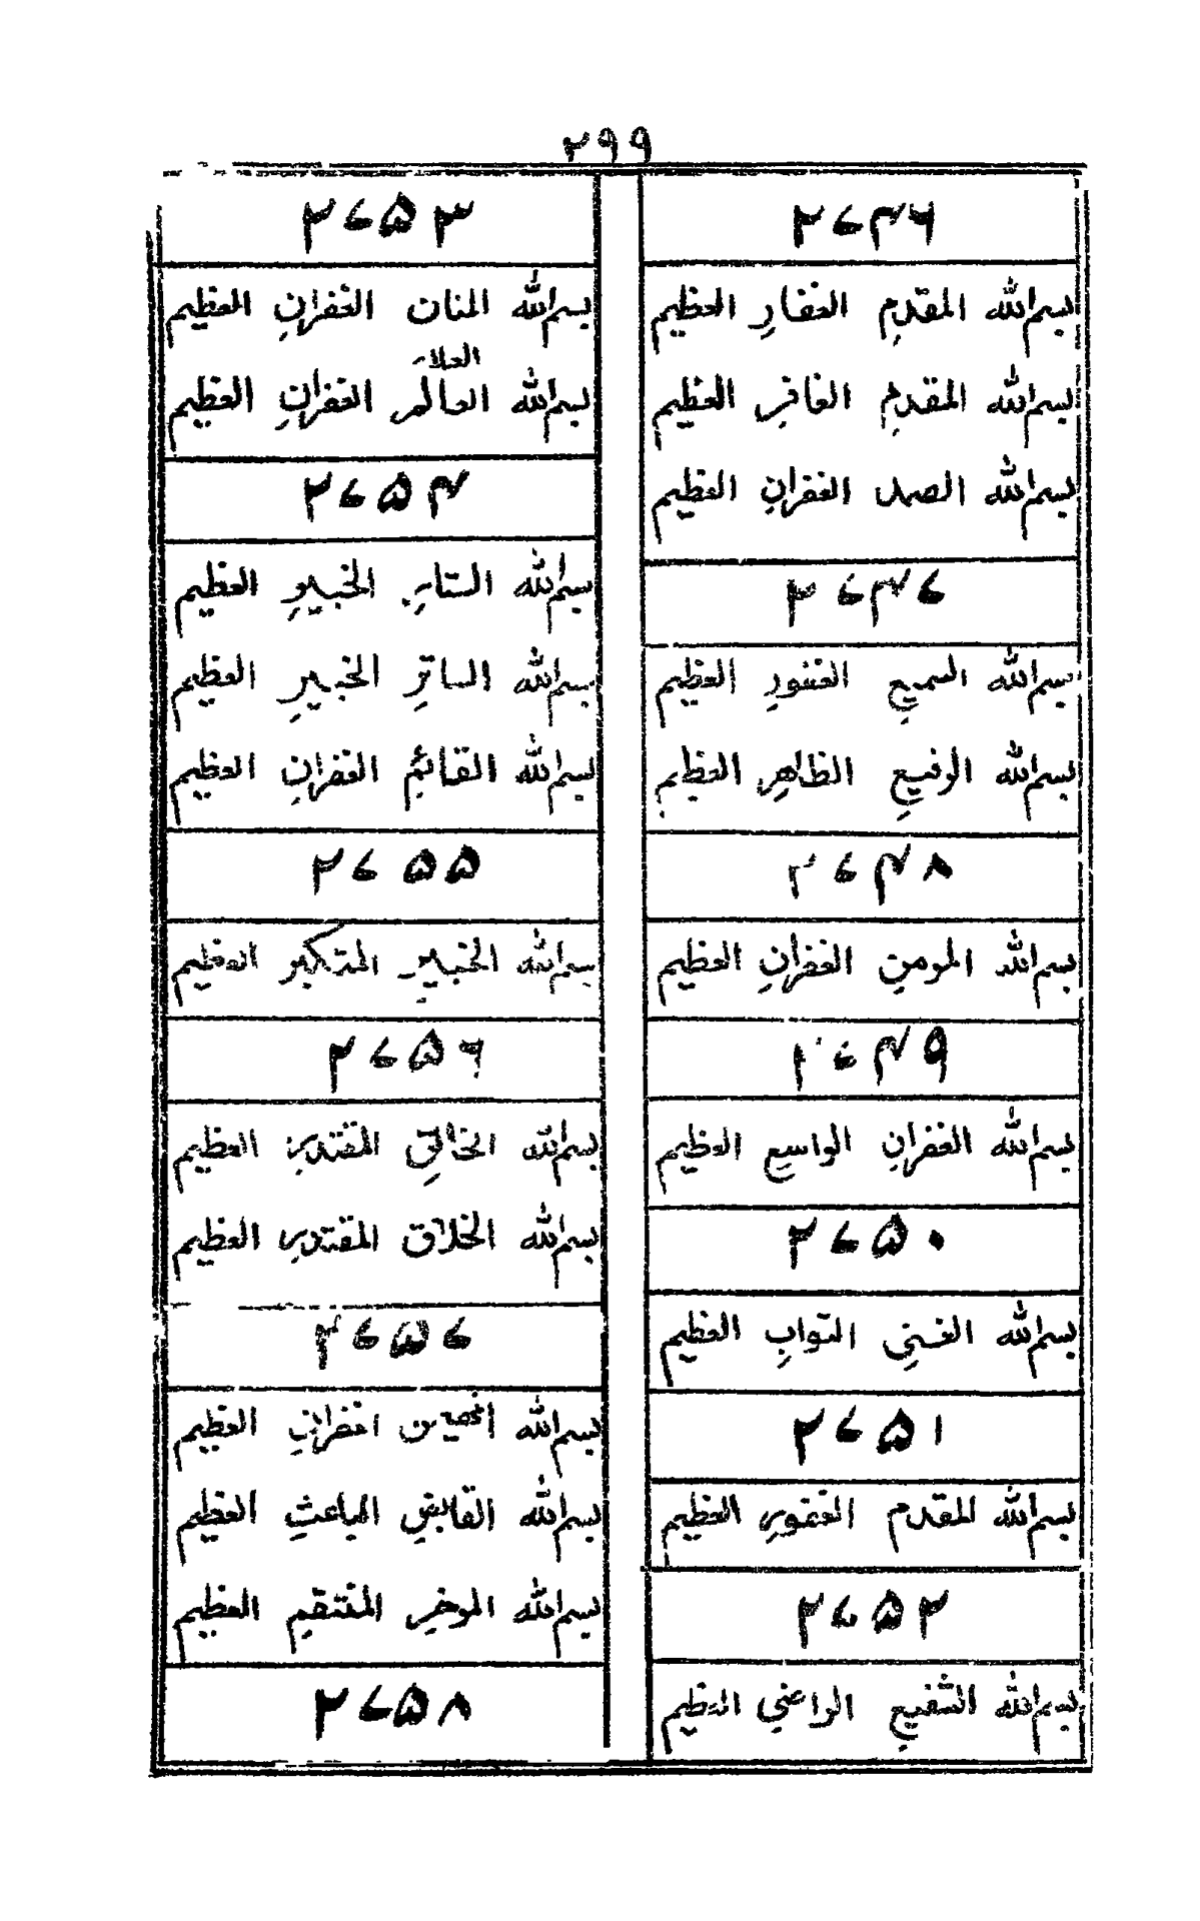 ۲۹۹
۲۷۴۶
بسم الله المقدم الغفار العظيم
بسم الله المقدم الغافر العظيم
بسم الله الصمد الغفران العظيم
۲۷۴۷
بسم الله السميع الغفور العظيم
بسم الله الرفيع الظاهر العظيم
۲۷۴۸
بسم الله المومن الغفران العظيم
۲۷۴۹
بسم الله الغفران الواسع العظيم
۲۷۵۰
بسم الله الغني التواب العظيم
۲۷۵۱
بسم الله المقدم الغفور العظيم
۲۷۵۲
بسم الله الشفيع الراضي العظيم
۲۷۵۳
بسم الله المنان الغفران العظيم
العلام
بسم الله العالم الغفران العظيم
۲۷۵۴
بسم الله الستار الخبير العظيم
بسم الله الساتر الخبير العظيم
بسم الله القائم الغفران العظيم
۲۷۵۵
بسم الله الخبير المتكبر العظيم
۲۷۵۶
بسم الله الخالق المقتدر العظيم
بسم الله الخلاق المقتدر العظيم
۲۷۵۷
بسم الله الغفران العظيم
بسم الله القابض الباعث العظيم
بسم الله الموخر المنتقم العظيم
۲۷۵۸